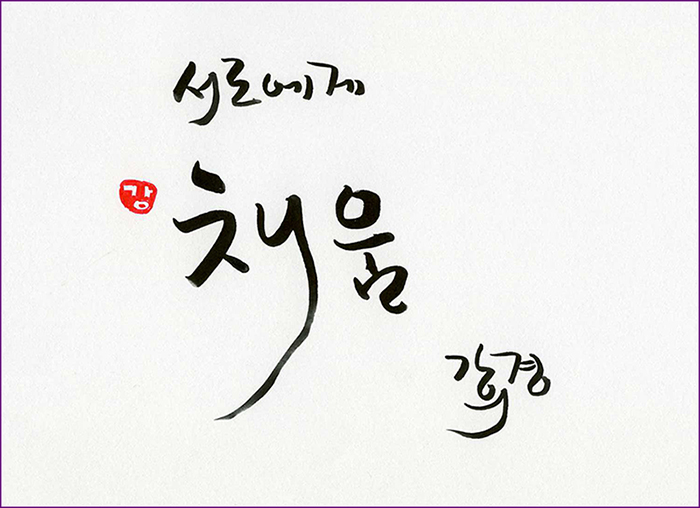 서로에게
강
채움
강희경